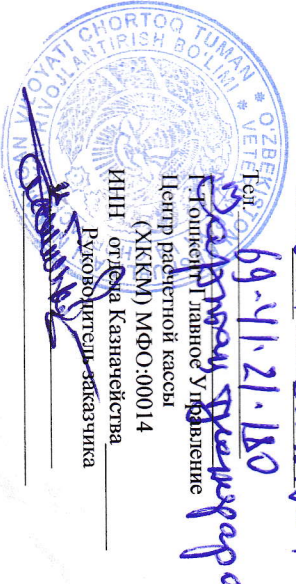 Тел 69-41-21-180
Г.Тошкент Главное Управление
Центр расчетной кассы
(ХККМ) МФО:00014
ИНН отдела Казначейства
Руководитель заказчика
O'ZBEKISTON
VILOYATI CHORTOQ TUMAN
VETER
RIVOJLANTIRISH BO'LIMI